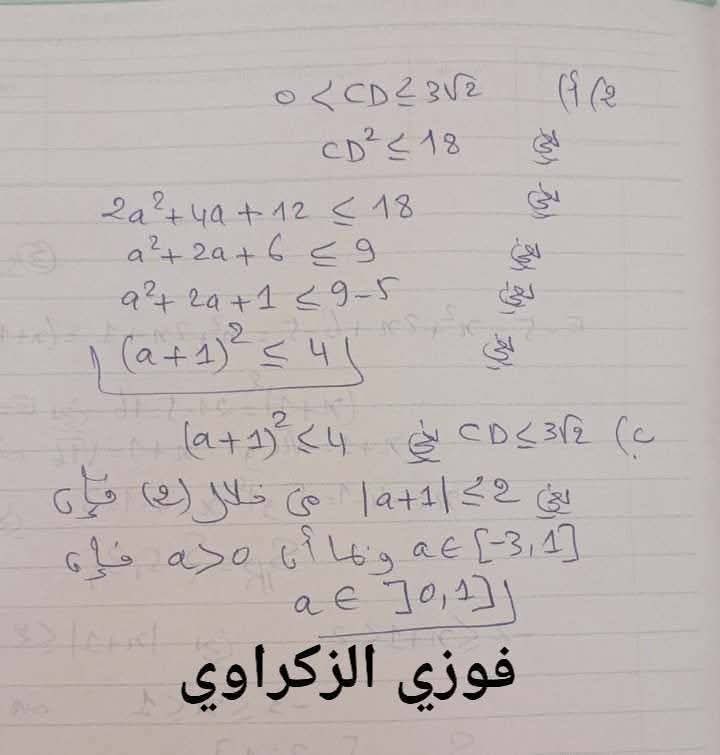 2) أ) 0 < CD ≤ 3√2
يعني CD² ≤ 18
يعني 2a² + 4a + 12 ≤ 18
يعني a² + 2a + 6 ≤ 9
يعني a² + 2a + 1 ≤ 9 - 5
يعني (a + 1)² ≤ 4
ب) CD ≤ 3√2 يعني (a + 1)² ≤ 4
يعني |a + 1| ≤ 2 من خلال (2) فإن
a ∈ [-3, 1] وبما أن a > 0 فإن
a ∈ ]0, 1]
فوزي الزكراوي